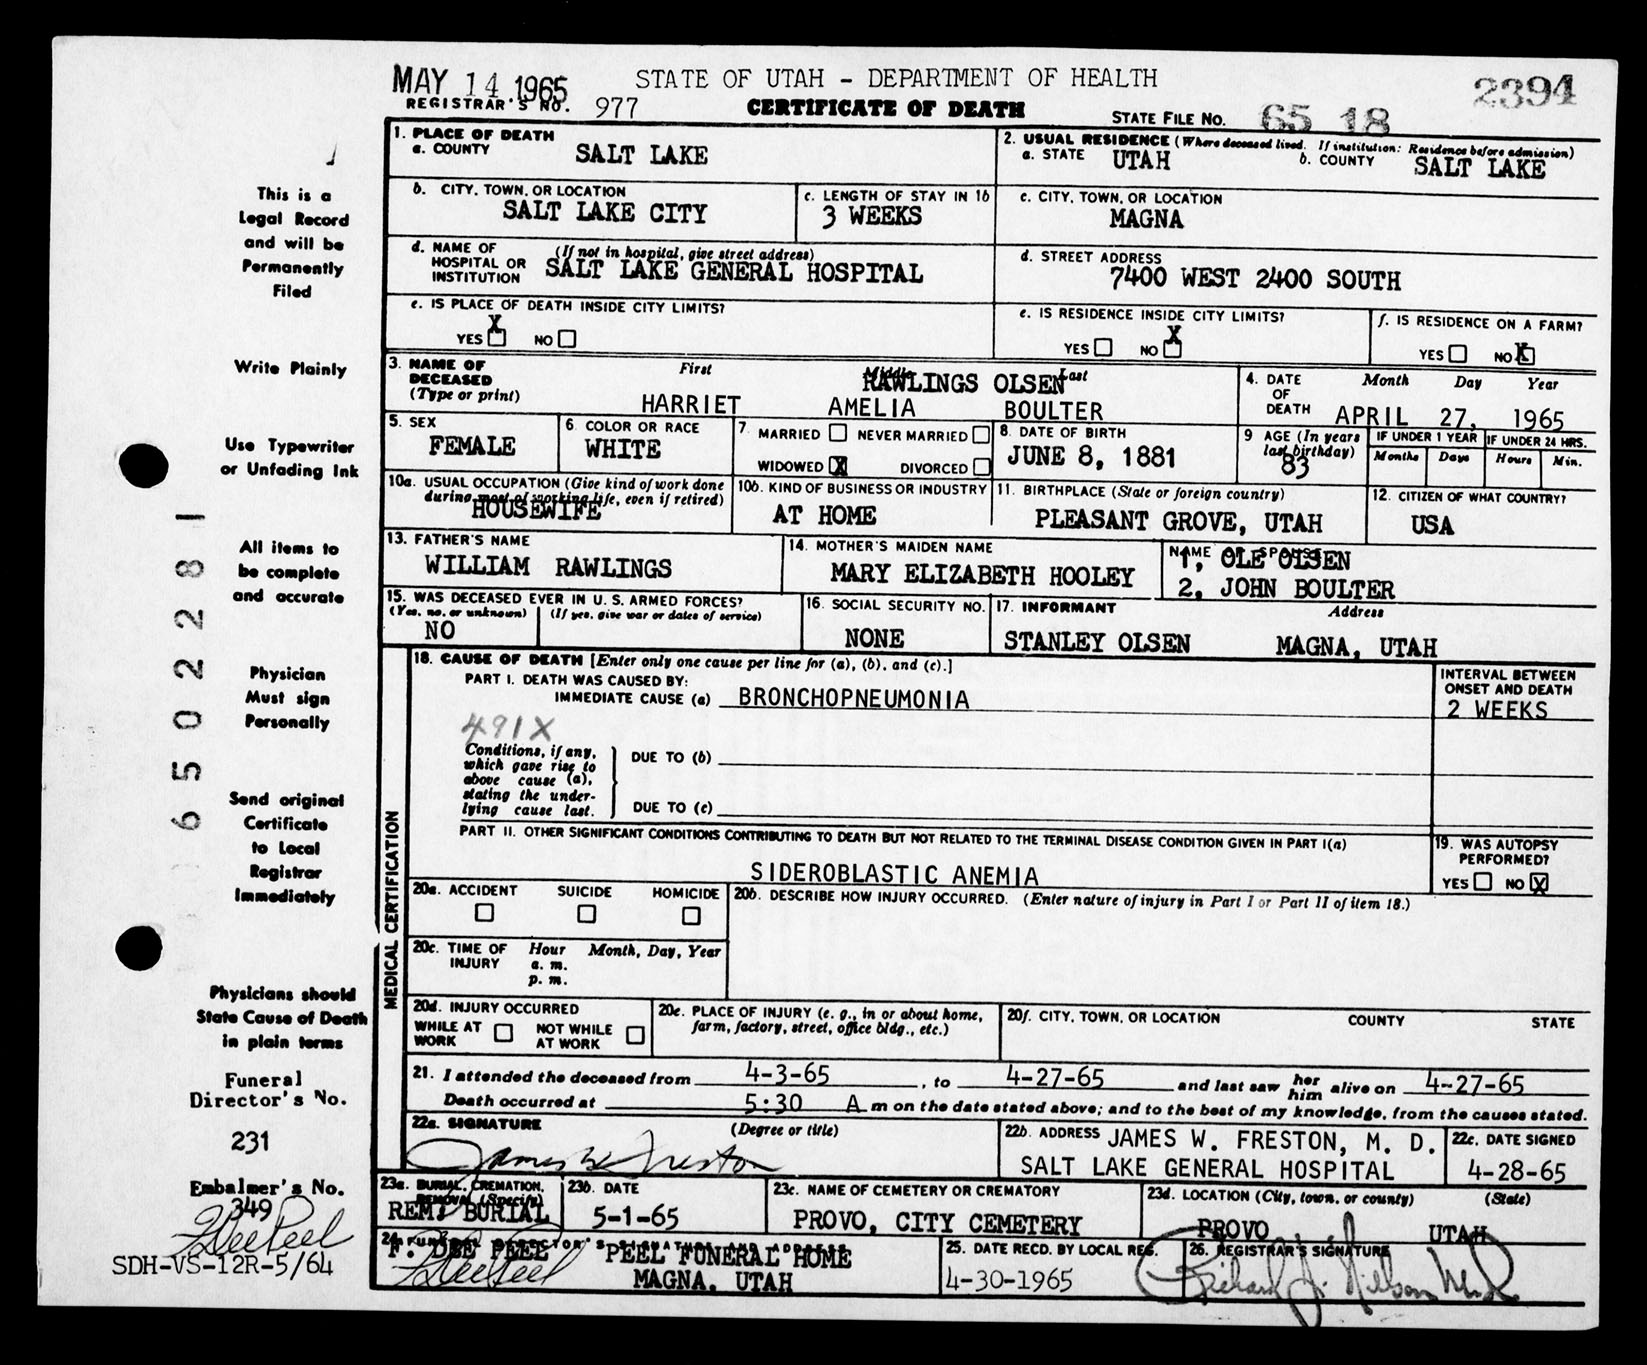 MAY 14 1965 STATE OF UTAH - DEPARTMENT OF HEALTH 2394
REGISTRAR'S NO. 977 CERTIFICATE OF DEATH STATE FILE NO. 65 18
1. PLACE OF DEATH
a. COUNTY SALT LAKE
2. USUAL RESIDENCE (Where deceased lived. If institution: Residence before admission)
a. STATE UTAH b. COUNTY SALT LAKE
b. CITY, TOWN, OR LOCATION
SALT LAKE CITY
c. LENGTH OF STAY IN 1b
3 WEEKS
c. CITY, TOWN, OR LOCATION
MAGNA
d. NAME OF HOSPITAL OR INSTITUTION (If not in hospital, give street address)
SALT LAKE GENERAL HOSPITAL
d. STREET ADDRESS
7400 WEST 2400 SOUTH
e. IS PLACE OF DEATH INSIDE CITY LIMITS?
YES X NO
e. IS RESIDENCE INSIDE CITY LIMITS?
YES NO X
f. IS RESIDENCE ON A FARM?
YES NO X
3. NAME OF DECEASED (Type or print)
First Middle Last
RAWLINGS OLSEN
HARRIET AMELIA BOULTER
4. DATE OF DEATH Month Day Year
APRIL 27, 1965
5. SEX
FEMALE
6. COLOR OR RACE
WHITE
7. MARRIED NEVER MARRIED
WIDOWED X DIVORCED
8. DATE OF BIRTH
JUNE 8, 1881
9 AGE (In years last birthday)
83
IF UNDER 1 YEAR IF UNDER 24 HRS.
Months Days Hours Min.
10a. USUAL OCCUPATION (Give kind of work done during most of working life, even if retired)
HOUSEWIFE
10b. KIND OF BUSINESS OR INDUSTRY
AT HOME
11. BIRTHPLACE (State or foreign country)
PLEASANT GROVE, UTAH
12. CITIZEN OF WHAT COUNTRY?
USA
13. FATHER'S NAME
WILLIAM RAWLINGS
14. MOTHER'S MAIDEN NAME
MARY ELIZABETH HOOLEY
NAME OF SPOUSE
1, OLE OLSEN
2, JOHN BOULTER
15. WAS DECEASED EVER IN U. S. ARMED FORCES?
(Yes, no, or unknown) (If yes, give war or dates of service)
NO
16. SOCIAL SECURITY NO.
NONE
17. INFORMANT Address
STANLEY OLSEN MAGNA, UTAH
MEDICAL CERTIFICATION
18. CAUSE OF DEATH [Enter only one cause per line for (a), (b), and (c).]
PART I. DEATH WAS CAUSED BY:
IMMEDIATE CAUSE (a) BRONCHOPNEUMONIA
INTERVAL BETWEEN ONSET AND DEATH
2 WEEKS
491X
Conditions, if any,
which gave rise to
above cause (a),
stating the under-
lying cause last.
DUE TO (b)
DUE TO (c)
PART II. OTHER SIGNIFICANT CONDITIONS CONTRIBUTING TO DEATH BUT NOT RELATED TO THE TERMINAL DISEASE CONDITION GIVEN IN PART I(a)
SIDEROBLASTIC ANEMIA
19. WAS AUTOPSY PERFORMED?
YES NO X
20a. ACCIDENT SUICIDE HOMICIDE
20b. DESCRIBE HOW INJURY OCCURRED. (Enter nature of injury in Part I or Part II of item 18.)
20c. TIME OF INJURY Hour Month, Day, Year
a. m.
p. m.
20d. INJURY OCCURRED
WHILE AT WORK NOT WHILE AT WORK
20e. PLACE OF INJURY (e. g., in or about home, farm, factory, street, office bldg., etc.)
20f. CITY, TOWN, OR LOCATION COUNTY STATE
21. I attended the deceased from 4-3-65, to 4-27-65 and last saw her him alive on 4-27-65
Death occurred at 5:30 A m on the date stated above; and to the best of my knowledge, from the causes stated.
22a. SIGNATURE (Degree or title)
James W Freston
22b. ADDRESS JAMES W. FRESTON, M. D.
SALT LAKE GENERAL HOSPITAL
22c. DATE SIGNED
4-28-65
23a. BURIAL, CREMATION, REMOVAL (Specify)
REM. BURIAL
23b. DATE
5-1-65
23c. NAME OF CEMETERY OR CREMATORY
PROVO, CITY CEMETERY
23d. LOCATION (City, town, or county) (State)
PROVO UTAH
24. FUNERAL DIRECTOR'S SIGNATURE AND ADDRESS
F. DEE PEEL PEEL FUNERAL HOME
MAGNA, UTAH
F Dee Peel
25. DATE RECD. BY LOCAL REG.
4-30-1965
26. REGISTRAR'S SIGNATURE
This is a
Legal Record
and will be
Permanently
Filed
Write Plainly
Use Typewriter
or Unfading Ink
All items to
be complete
and accurate
Physician
Must sign
Personally
Send original
Certificate
to Local
Registrar
Immediately
Physicians should
State Cause of Death
in plain terms
Funeral
Director's No.
231
Embalmer's No.
349
F Dee Peel
SDH-VS-12R-5/64
6502281